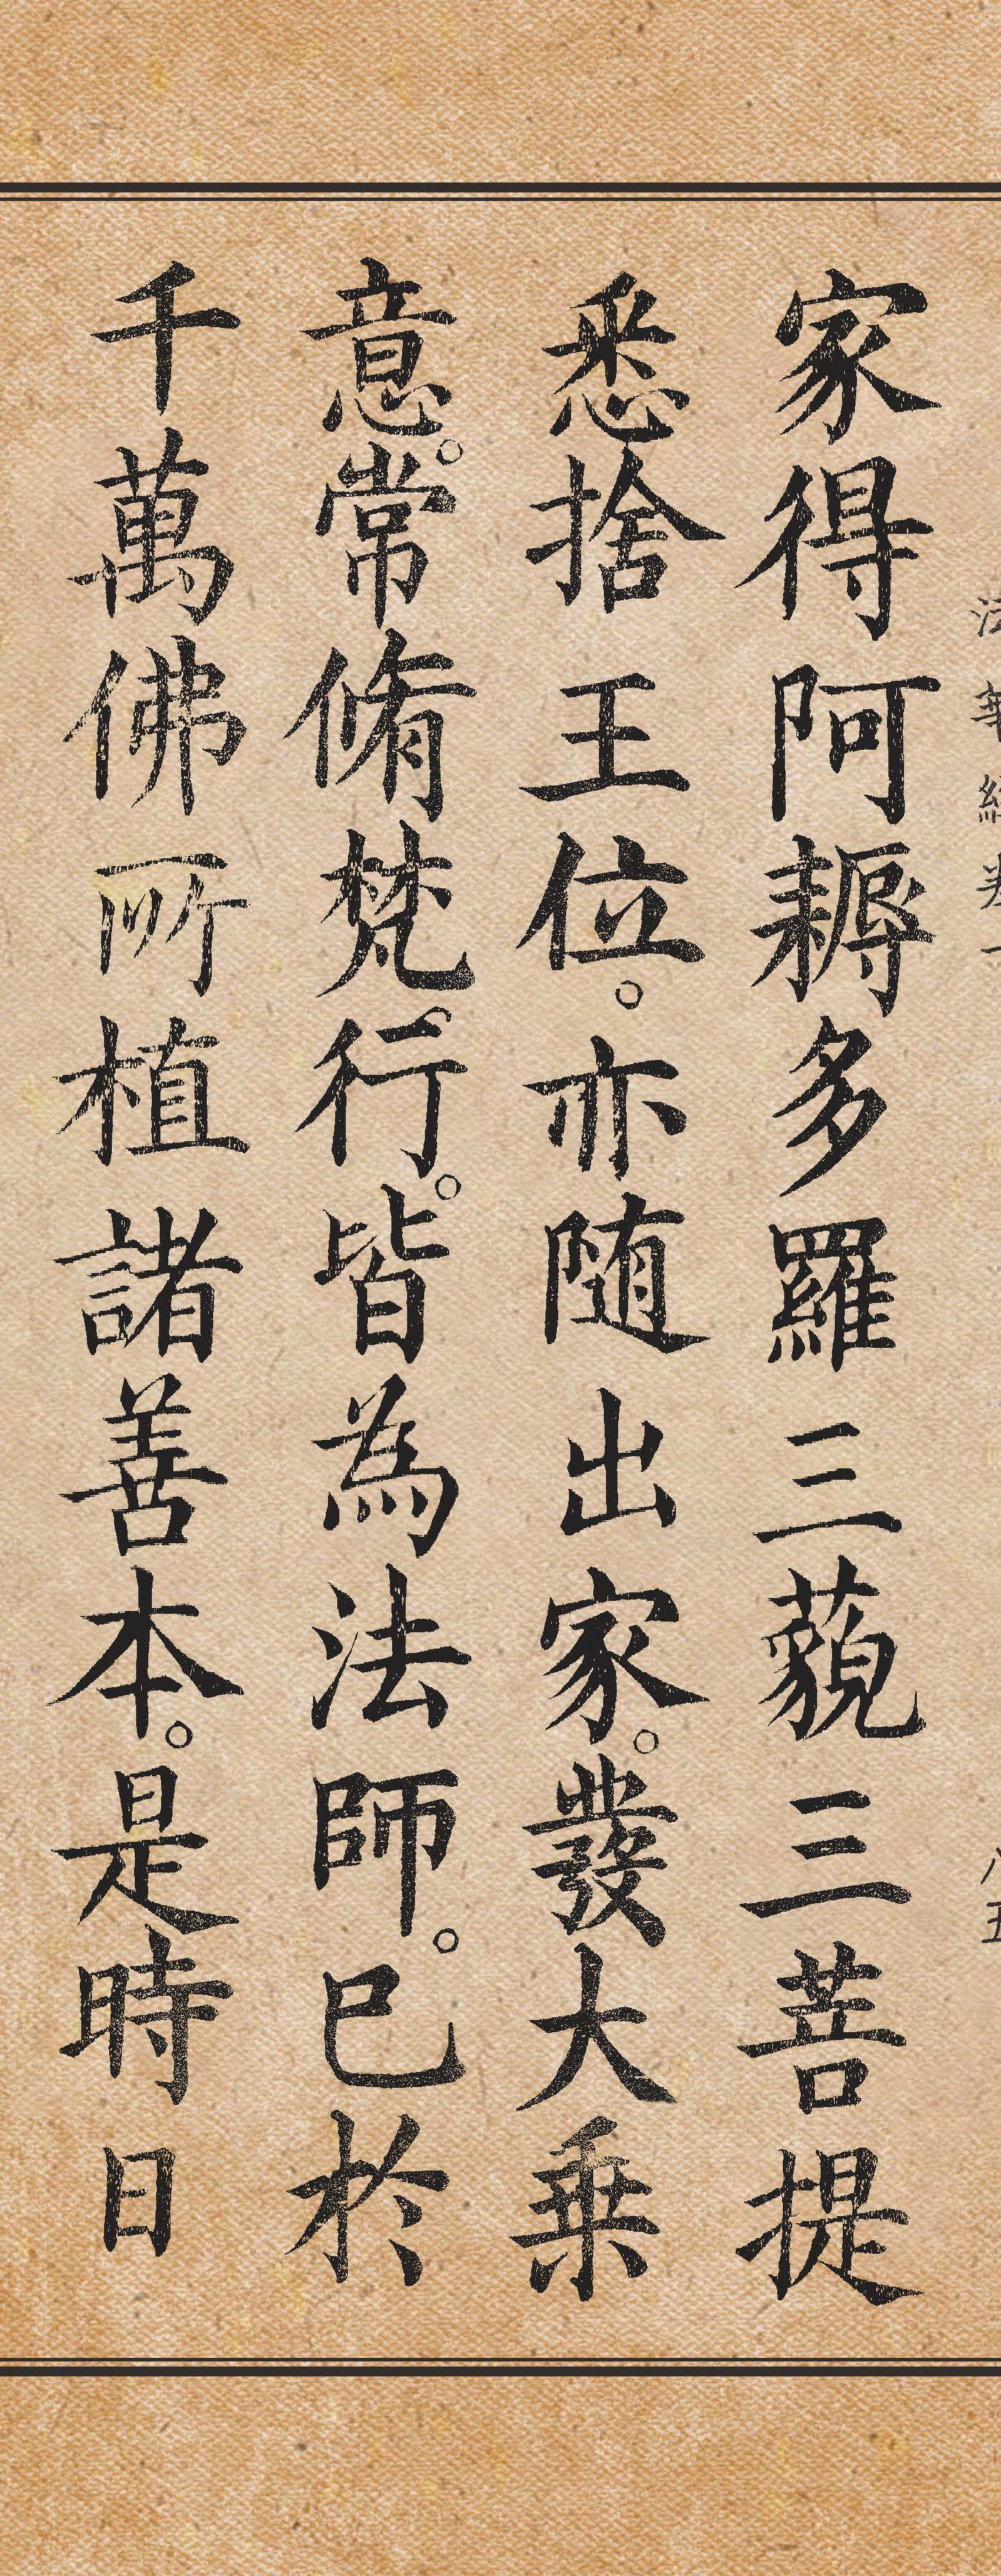 家得阿耨多羅三藐三菩提
悉捨王位。亦随出家。發大乗
意。常脩梵行。皆為法師。已於
千萬佛所植諸善本。是時日